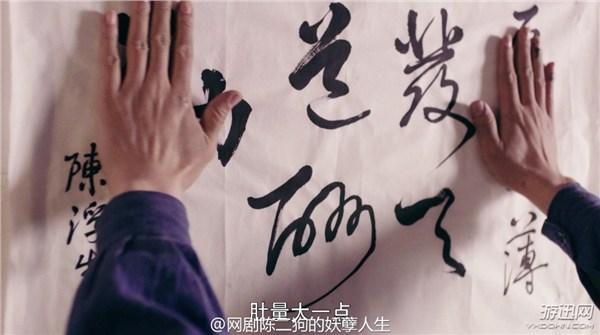 薄
發天
道酬
陳浮生
肚量大一点
@网剧陈二狗的妖孽人生
游迅网
YXDOWN.COM